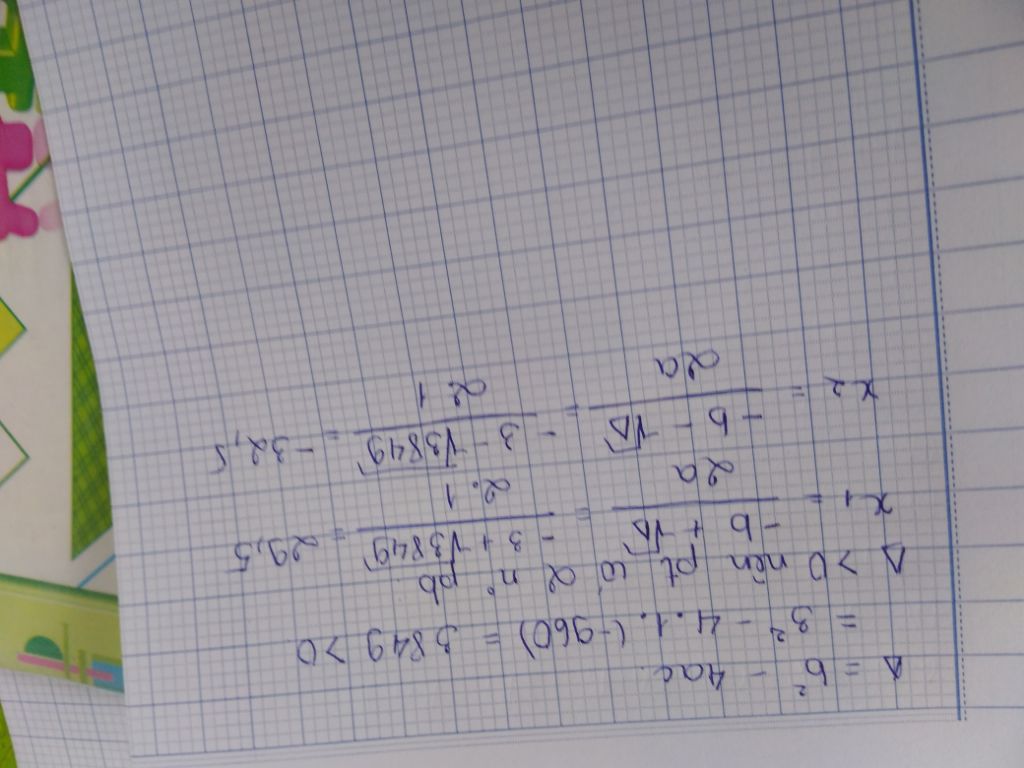 Δ = b² - 4ac
= 3² - 4.1.(-960) = 3849 > 0
Δ > 0 nên pt có 2 n° pb
x₁ = (-b + √Δ) / 2a = (-3 + √3849) / 2.1 = 29,5
x₂ = (-b - √Δ) / 2a = (-3 - √3849) / 2.1 = -32,5